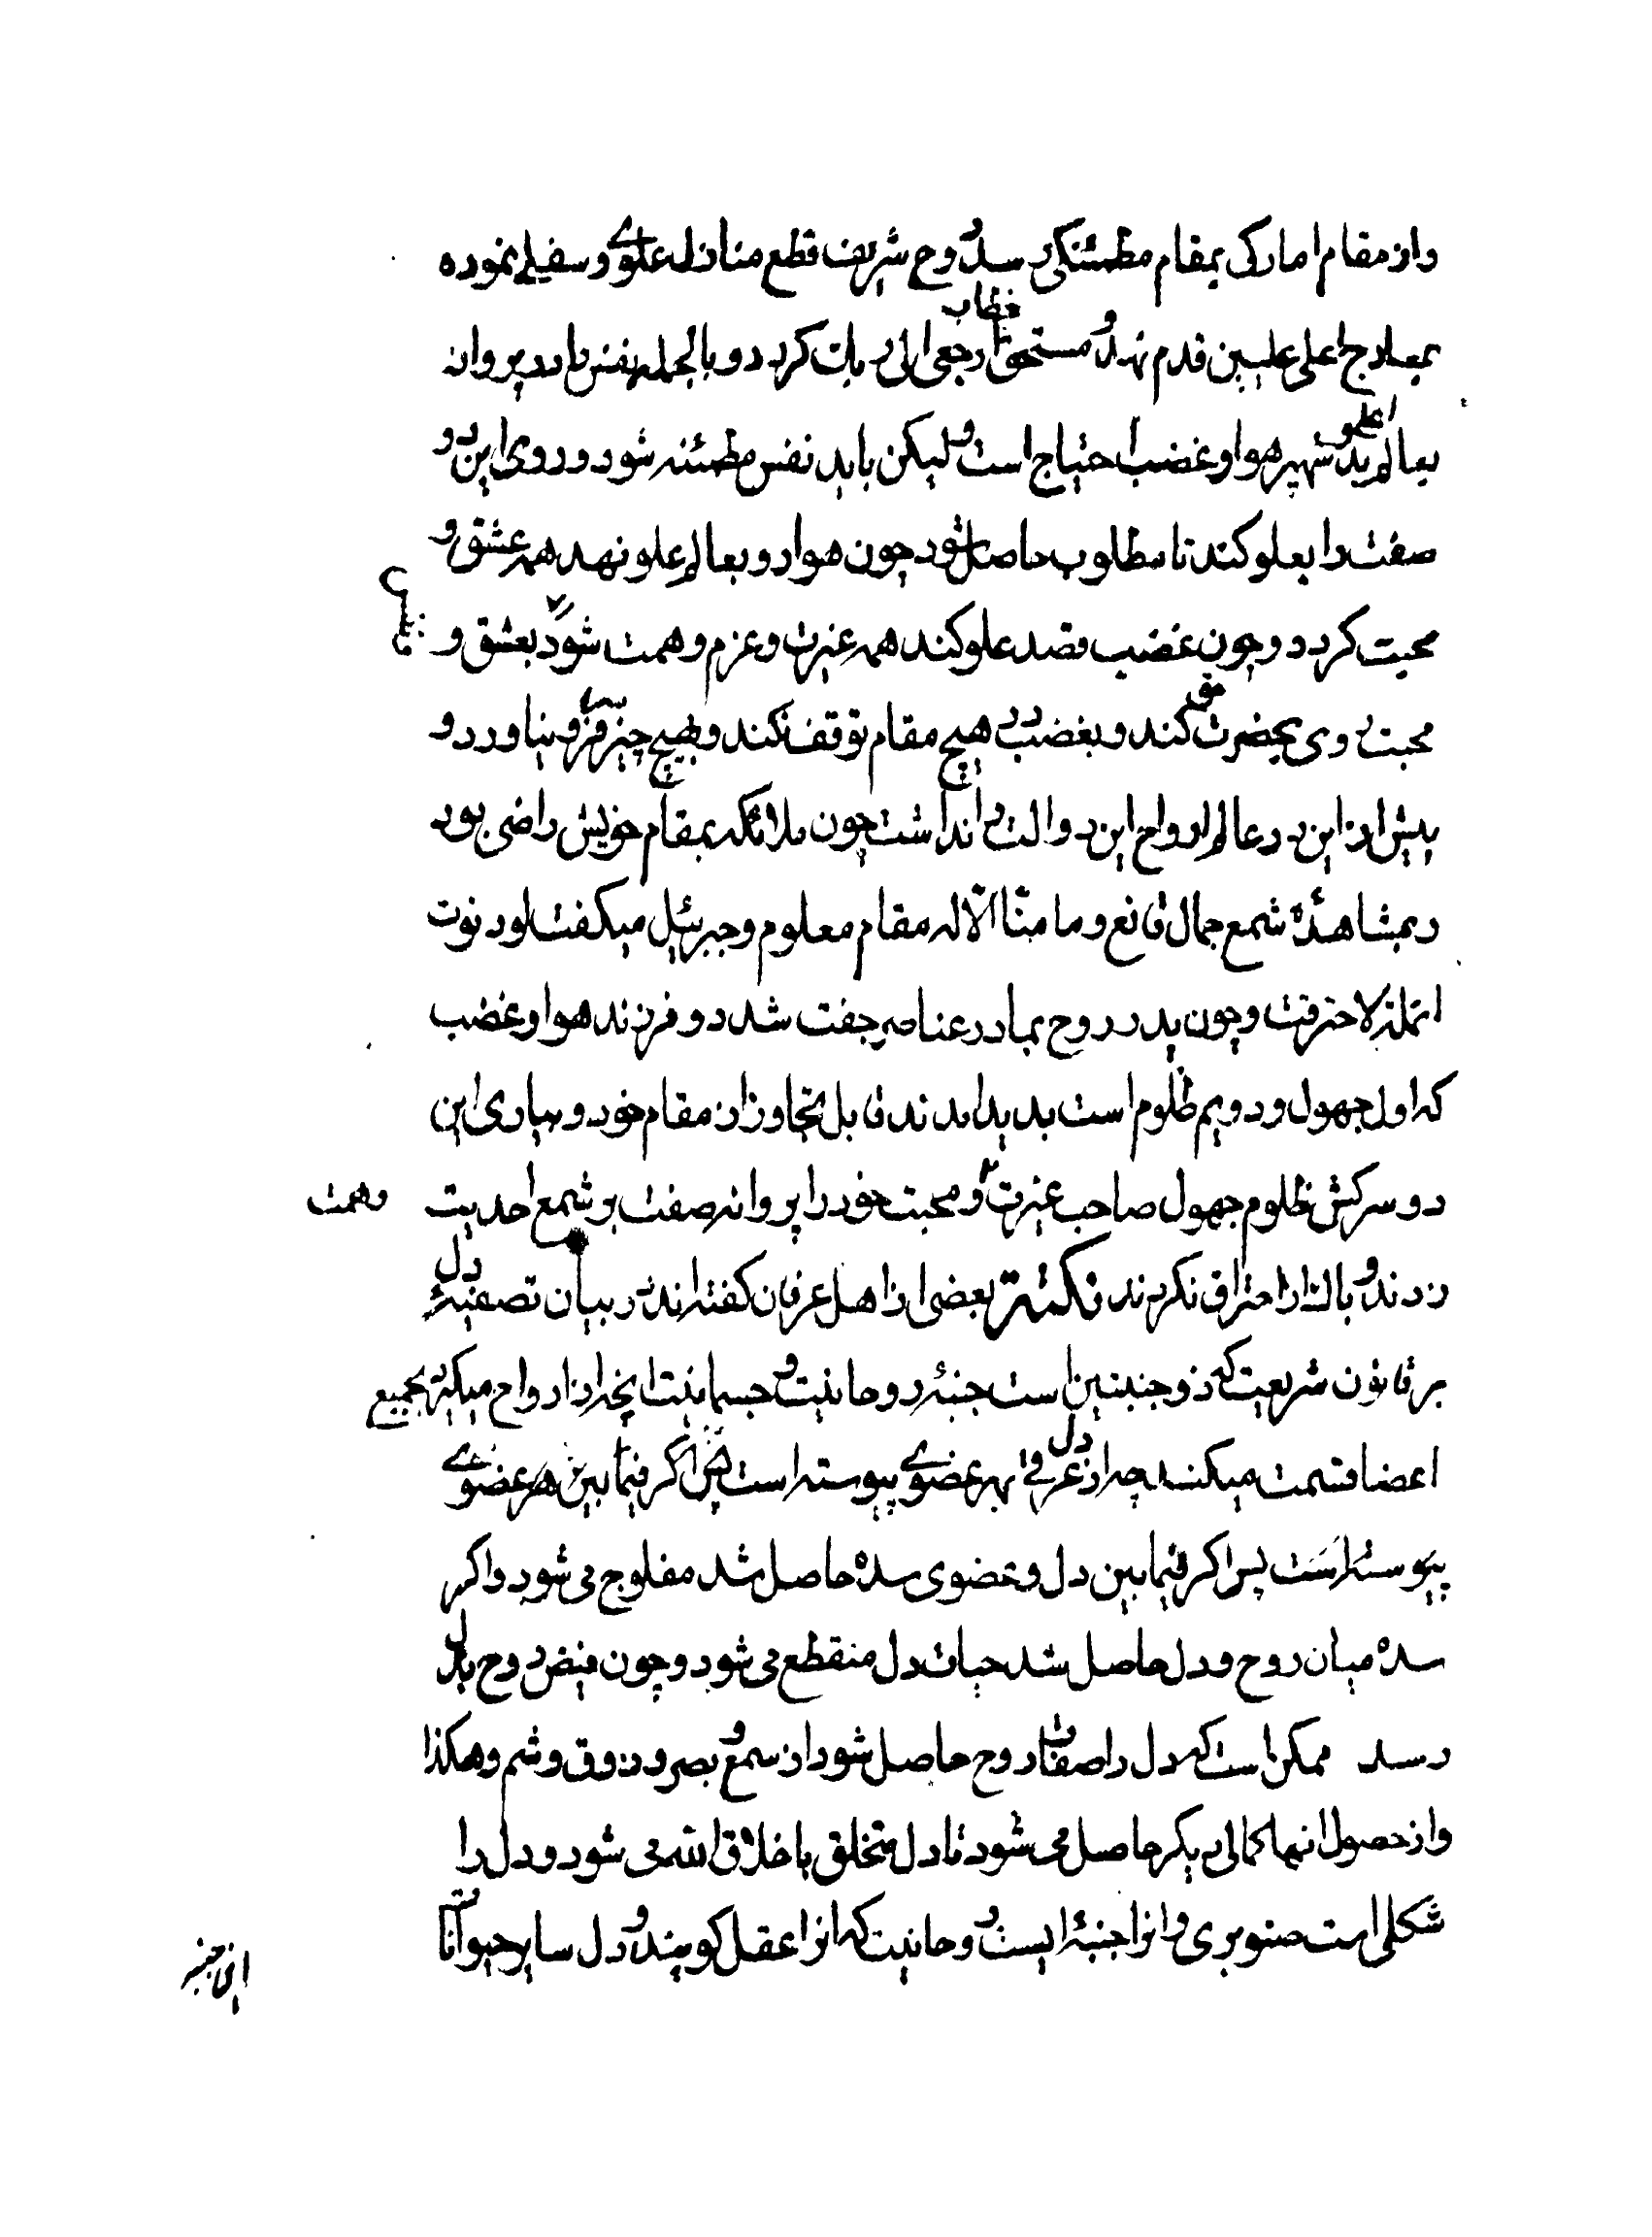 واز مقام امارکی بمقام مطمئنکی رسد و روح شریف قطع منازل علوی و سفلی نموده
بمعارج اعلی علیین قدم نهد و مستحق خطاب ارجعی الی ربک کردد و بالجمله نفس را در پروانه
بعالم علو بدو شهپر هوا و غضب احتیاج است و لیکن باید نفس مطمئنه شود و روی این دو
صفت را بعلو کند تا مطلوب حاصل شود چون هوا رو بعالم علو نهد همه عشق و
محبت کردد و چون غضب قصد علو کند همه غیرت و عزم و همت شود بعشق و
محبت روی بحضرت حق کند و بغضب در هیچ مقام توقف نکند و بهیچ چیز سر فرو نیاورد و
پیش از این در عالم ارواح این دو الت را نداشت چون ملائکه بمقام خویش راضی بود
و بمشاهدۀ شمع جمال قانع و ما منّا الّا له مقام معلوم و جبرئیل میکفت لو دنوت
انملة لاحترقت و چون پدر روح بمادر عناصر جفت شد دو فرزند هوا و غضب
که اول جهول و دویم ظلوم است بدید امدند قابل تجاوز از مقام خود و بیاری این
دو سرکش ظلوم جهول صاحب غیرت و محبت خود را پروانه صفت بر شمع احدیت
وهمت
زدند و بالذات احتراق نکردند نکتة بعضی از اهل عرفان کفته اند در بیان تصفیۀ دل
بر قانون شریعت که ذو جنبتین است جنبۀ روحانیت و جسمانیت انچه از ارواح میکیرد بجمیع
اعضا قسمت میکند چه از دل عرقی بهر عضوی پیوسته است پس اکر فیما بین هر عضوی
پیوسته است پس اکر فیما بین دل و عضوی سده حاصل شد مفلوج می شود و اکر
سده میان روح و دل حاصل شد حیات دل منقطع می شود و چون فیض روح بدل
رسد ممکن است که دل را صفات روح حاصل شود از سمع و بصر و ذوق و شم و هکذا
و از حصول انها کمالی دیکر حاصل می شود تا دل متخلق باخلاق الله می شود و دل را
شکلی است صنوبری و انرا جنبۀ ایست روحانیت که انرا عقل کویند و دل سایر حیوانات
این جنبه